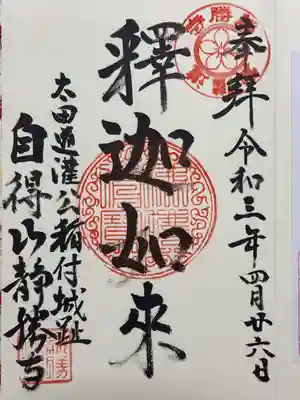 奉拝
令和三年四月廿六日
釋迦如來
太田道灌公稲付城趾
自得山静勝寺